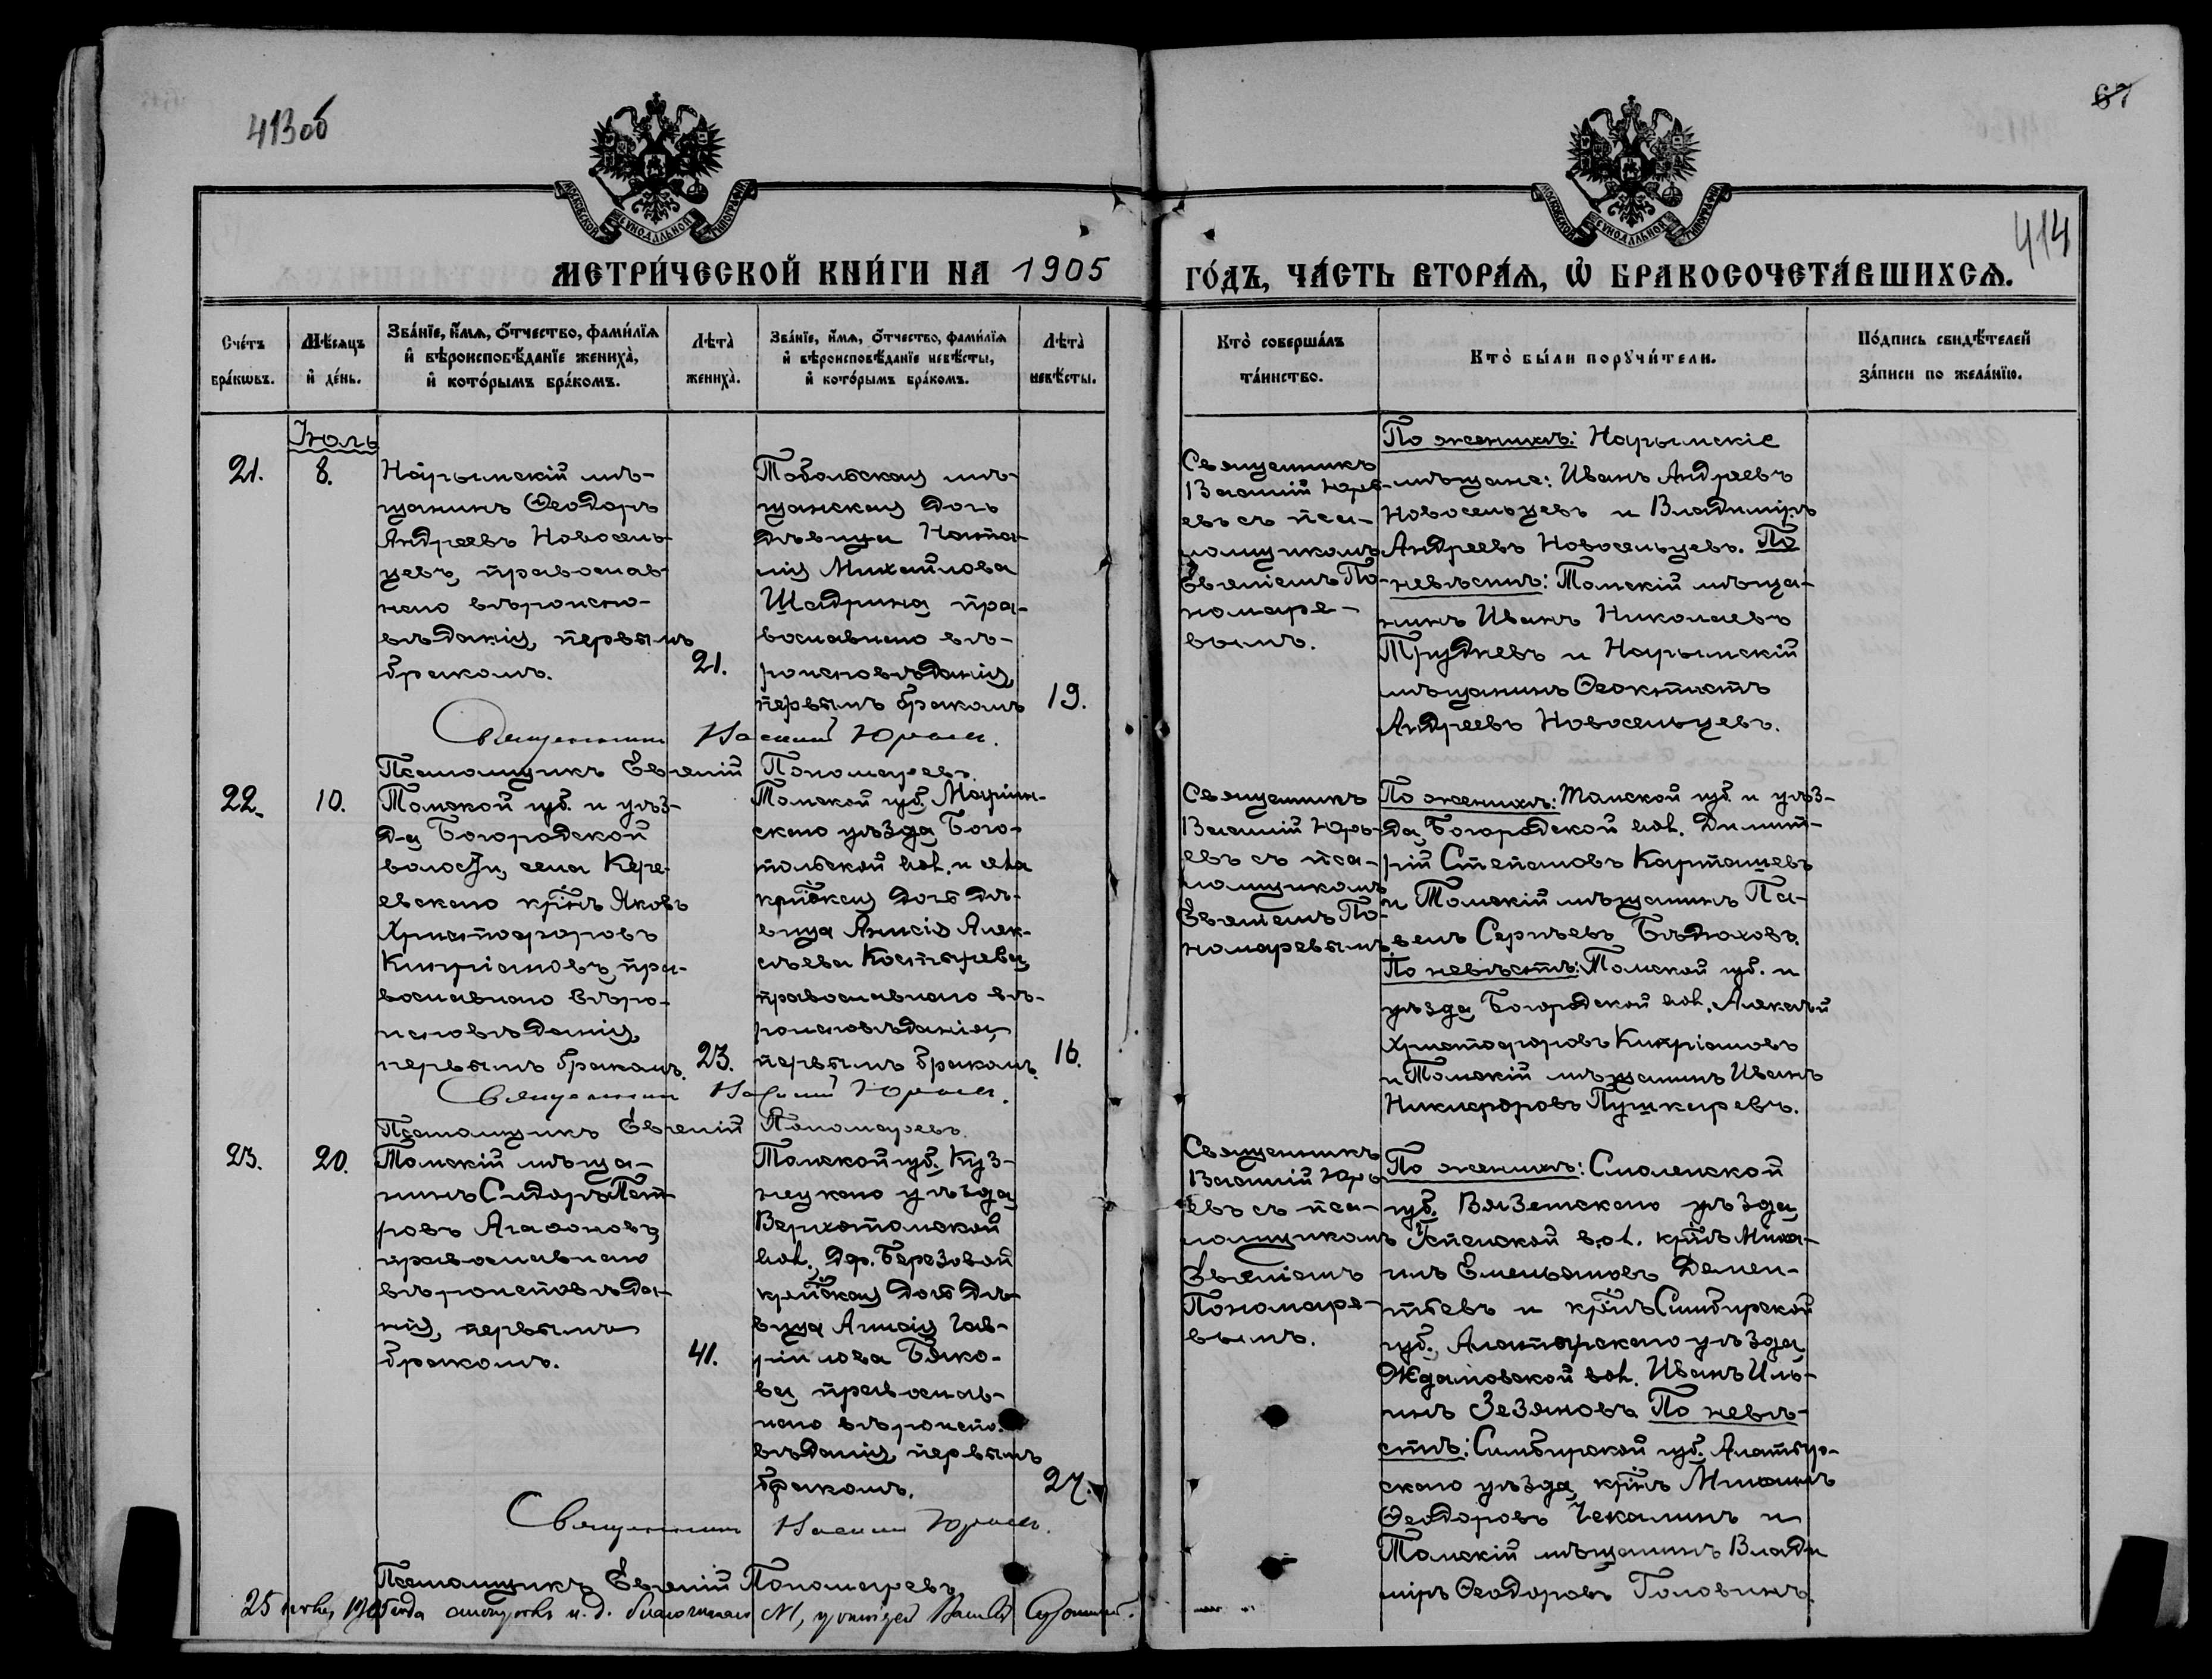 413об
67
414
МЕТРИ́ЧЕСКОЙ КНИ́ГИ НА 1905
ГО́ДЪ, ЧА́СТЬ ВТОРА́Я, Ѡ БРАКОСОЧЕТА́ВШИХСЯ.
МОСКОВСКОЙ СѴНОДАЛЬНОЙ ТИПОГРАФІИ
МОСКОВСКОЙ СѴНОДАЛЬНОЙ ТИПОГРАФІИ
Сче́тъ
бра́кѡвъ.
Мѣ́сяцъ
и҆ де́нь.
Зва́нїе, и҆́мя, ѻ҆́тчество, фами́лїя
и҆ вѣроисповѣ́данїе жениха̀,
и҆ кото́рымъ бра́комъ.
Лѣта̀
жениха̀.
Зва́нїе, и҆́мя, ѻ҆́тчество, фами́лїя
и҆ вѣроисповѣ́данїе невѣ́сты,
и҆ кото́рымъ бра́комъ.
Лѣта̀
невѣ́сты.
Кто̀ соверша́лъ
та́инство.
Кто̀ бы́ли поручи́тели.
По́дпись свидѣ́телей
за́писи по жела́нїю.
Іюль
21.
8.
Нарымскій мѣ-
щанинъ Ѳеодоръ
Андреевъ Новосель-
цевъ, православ-
наго вѣроиспо-
вѣданія, первымъ
бракомъ.
21.
Тобольская мѣ-
щанская дочь
дѣвица Ната-
лія Михайлова
Шадрина, пра-
вославнаго вѣ-
роисповѣданія,
первымъ бракомъ
19.
Священникъ
Василій Юрь-
евъ съ пса-
ломщикомъ
Евгеніемъ По-
номаре-
вымъ.
По женихѣ: Нарымскіе
мѣщане: Иванъ Андреевъ
Новосельцевъ и Владиміръ
Андреевъ Новосельцевъ. По
невѣстѣ: Томскій мѣща-
нинъ Иванъ Николаевъ
Трудневъ и Нарымскій
мѣщанинъ Ѳеоктистъ
Андреевъ Новосельцевъ.
Священникъ Василій Юрьевъ.
Псаломщикъ Евгеній Пономаревъ.
22.
10.
Томской губ. и уѣз-
да Богородской
волости, села Кере-
евскаго кр̃нъ Яковъ
Христофоровъ
Кипріановъ, пра-
вославнаго вѣро-
исповѣданія,
первымъ бракомъ.
23.
Томской губ. Маріин-
скаго уѣзда Бого-
тольской вол. и села
кр̃нская дочь дѣ-
вица Анисія Алек-
сѣева Костырева,
православнаго вѣ-
роисповѣданія,
первымъ бракомъ.
16.
Священникъ
Василій Юрь-
евъ съ пса-
ломщикомъ
Евгеніемъ По-
номаревымъ.
По женихѣ: Томской губ. и уѣз-
да, Богородской вол. Димит-
рій Степановъ Карташевъ
и Томскій мѣщанинъ Па-
велъ Сергѣевъ Бѣдюховъ.
По невѣстѣ: Томской губ. и
уѣзда Богородской вол. Алексѣй
Христофоровъ Кипріановъ
и Томскій мѣщанинъ Иванъ
Никифоровъ Пушкаревъ.
Священникъ Василій Юрьевъ.
Псаломщикъ Евгеній Пономаревъ.
23.
20.
Томскій мѣща-
нинъ Сидоръ Пет-
ровъ Агафоновъ,
православнаго
вѣроисповѣда-
нія, первымъ
бракомъ.
41.
Томской губ. Куз-
нецкаго уѣзда,
Верхотомской
вол., дер. Березовой
кр̃нская дочь дѣ-
вица Анисія Гав-
ріилова Быко-
ва, православ-
наго вѣроиспо-
вѣданія, первымъ
бракомъ.
27.
Священникъ
Василій Юрь-
евъ съ пса-
ломщикомъ
Евгеніемъ
Пономаре-
вымъ.
По женихѣ: Смоленской
губ. Вяземскаго уѣзда,
Успенской вол. кр̃нъ Миха-
илъ Емельяновъ Демен-
тьевъ и кр̃нъ Симбирской
губ., Алатырскаго уѣзда,
Ждамовской вол. Иванъ Иль-
инъ Зезяновъ. По невѣ-
стѣ: Симбирской губ. Алатыр-
скаго уѣзда, кр̃нъ Михаилъ
Ѳеодоровъ Чекалинъ и
Томскій мѣщанинъ Влади
міръ Ѳеодоровъ Головинъ.
Священникъ Василій Юрьевъ.
Псаломщикъ Евгеній Пономаревъ
25 1905 года и. д. благочиннаго №1,